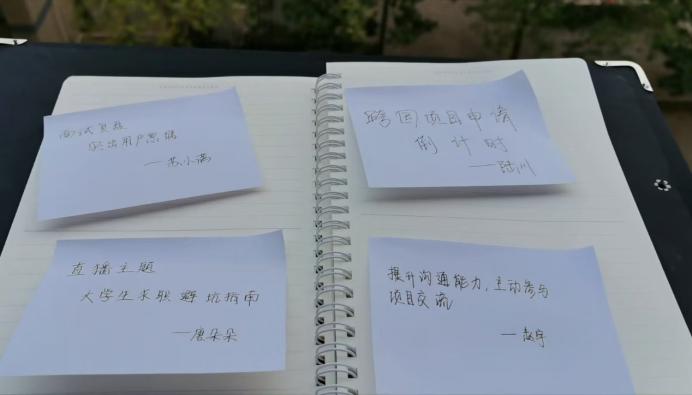 面试复盘
突出用户思维
——苏小满
跨国项目申请
倒计时
——陆川
直播主题
大学生求职避坑指南
——唐朵朵
提升沟通能力，主动参与
项目交流
——赵宇